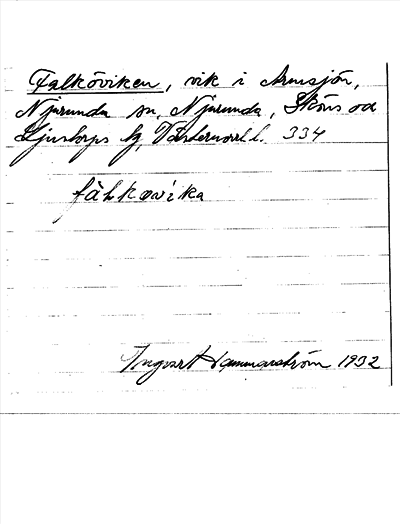 Falköviken, vik i Armsjön,
Njurunda sn, Njurunda, Sköns och
Ljustorps tg, Västernorrl l. 334
fàLkøvika
Ingvar Hammarström 1932